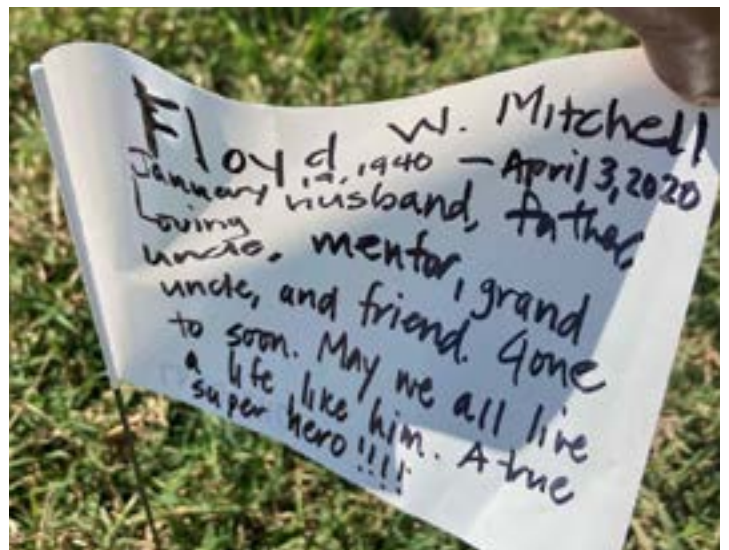 Floyd W. Mitchell
January 19, 1940 – April 3, 2020
Loving husband, father,
uncle, mentor, grand
uncle, and friend. Gone
to soon. May we all live
a life like him. A true
super hero!!!!